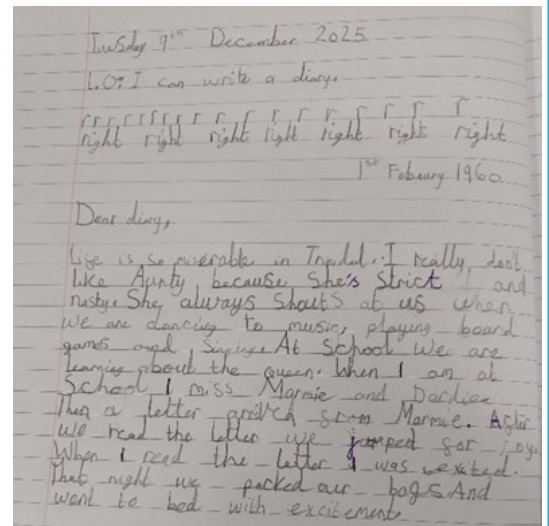 Tuesday 9th December 2025
L.O: I can write a diary.
r r r r r r r r r r r r r r r r
right right right right right right right
1st Febuary 1960
Dear diary,
Life is so miserable in I really don't
like Aunty because She's Strict and
nasty. She always Shouts at us when
we are dancing to music, playing board
games and Singing. At School we are
learning about the queen. When I am at
School I miss Marmie and
Then a letter from Marmie. After
we read the letter we jumped for joy.
When I read the letter I was
That night we packed our bags And
went to bed with excitement.